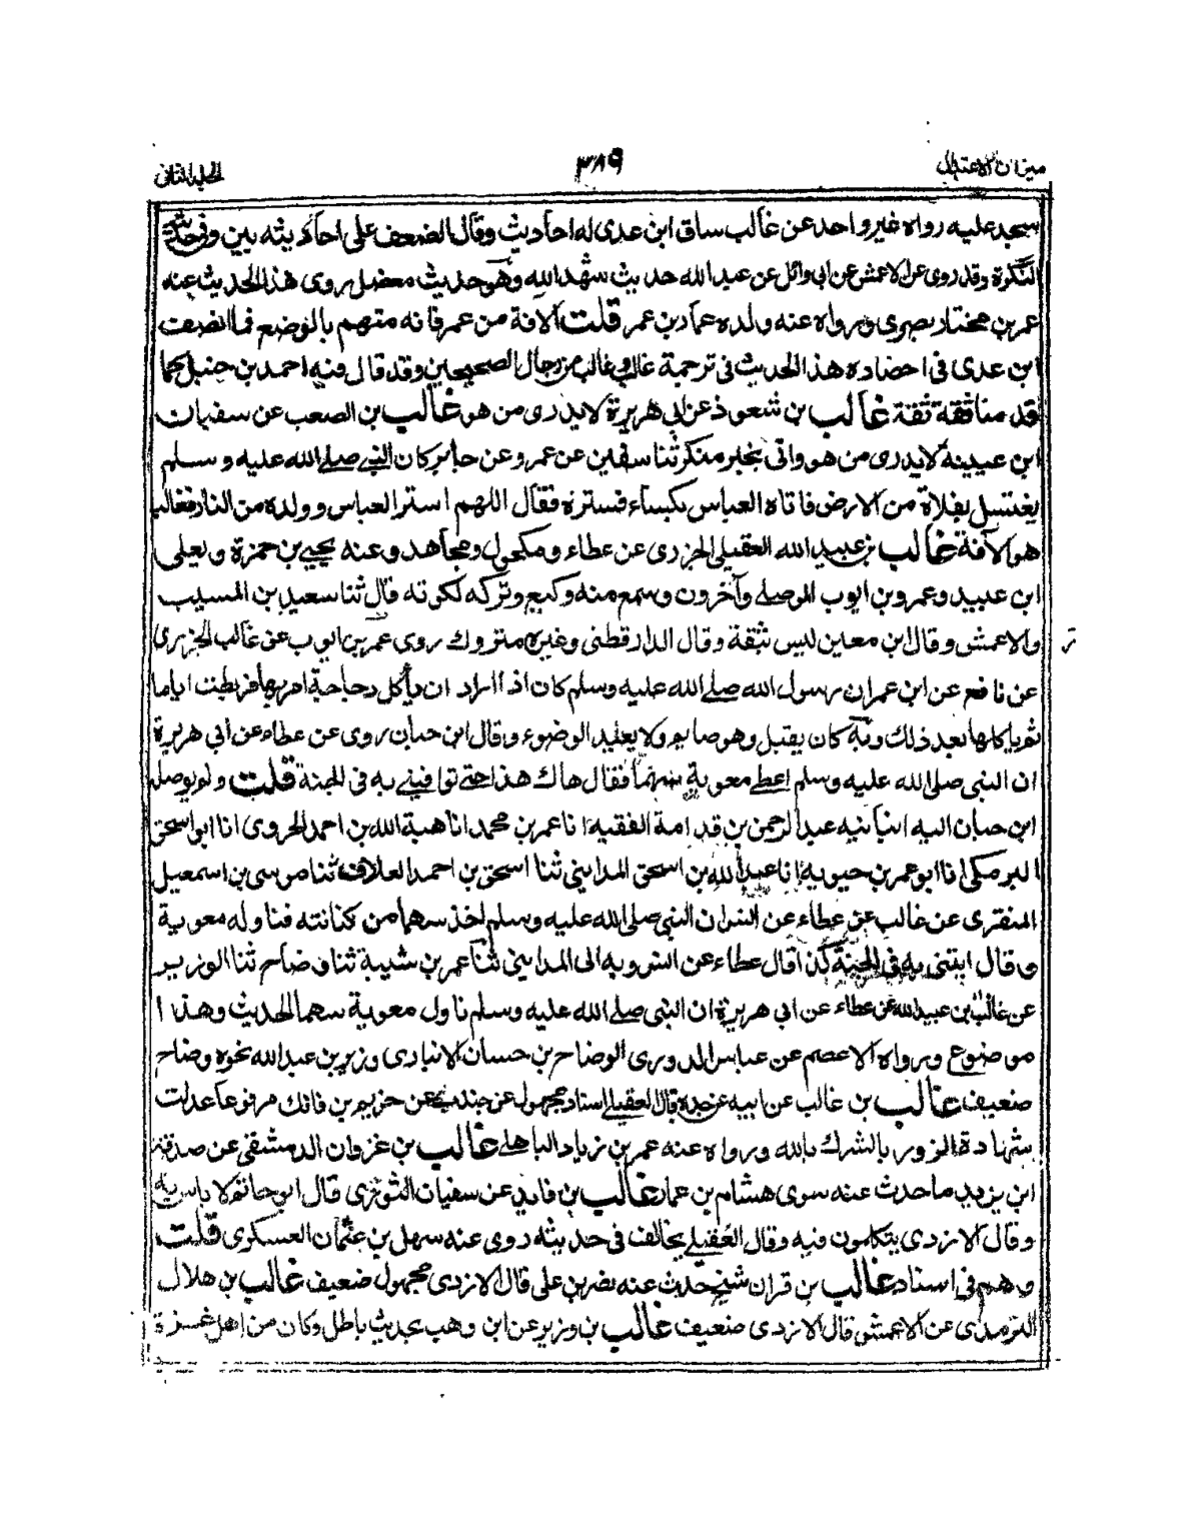 ميزان الاعتدال ٣٨٩ الجلد الثانى
سجد عليه رواه غير واحد عن غالب ساق ابن عدى له احاديث وقال الضعف على احاديثه بين وفى حديثه
النكرة وقد روى عن الاعمش عن ابى وائل عن عبد الله حديث شهد الله وهو حديث معضل يروى هذا الحديث عنه
عمر بن مختار بصرى ورواه عنه ولده عمار بن عمر قلت الآفة من عمر فانه متهم بالوضع فما انصف
ابن عدى فى احضاره هذا الحديث فى ترجمة غالب وغالب من رجال الصحيحين وقد قال فيه احمد بن حنبل كما
قد مناثقة ثقة غالب بن شعوذ عن ابى هريرة لا يدرى من هو غالب بن الصعب عن سفيان
ابن عيينة لا يدرى من هو واتى بخبر منكر ثنا سفين عن عمرو عن جابر كان النبى صلے الله عليه وسلم
يغتسل بفلاة من الارض فاتاه العباس بكساء فستره فقال اللهم استر العباس وولده من النار فغالب
هو الآفة غالب بن عبيد الله العقيلى الجزرى عن عطاء ومكحول ومجاهد وعنه يحيى بن حمزة ويعلى
ابن عبيد وعمرو بن ايوب الموصلے وآخرون وسمع منه وكيع وتركه لكونه قال ثنا سعيد بن المسيب
والاعمش وقال ابن معين ليس بثقة وقال الدارقطنى وغيره متروك روى عمر بن ايوب عن غالب الجزرى
عن نافع عن ابن عمر ان رسول الله صلے الله عليه وسلم كان اذا اراد ان ياكل دجاجة امر بها فربطت اياما
ثم ياكلها بعد ذلك وبه كان يقبل وهو صايم ولا يعيد الوضوء وقال ابن حبان روى عن عطاء عن ابى هريرة
ان النبى صلى الله عليه وسلم اعطے معوية سهما فقال هاك هذا حتے توافينے به فى الجنة قلت ولم يوصله
ابن حبان اليه انبأنيه عبد الرحمن بن قدامة الفقيه انا عمر بن محمد انا هبة الله بن احمد الحروى انا ابى اسحق
البرمكى انا ابو عمر بن حيويه انا عبد الله بن اسحق المداينى ثنا اسحق بن احمد العلاف ثنا موسى بن اسمعيل
المنقرى عن غالب عن عطاء عن انس ان النبى صلى الله عليه وسلم اخذ سهما من كنانته فناوله معوية
وقال ايتنى به فى الجنة كذا قال عطاء عن انس وبه الى المداينى ثنا عمر بن شيبة ثنا وضاح ثنا الوزير
عن غالب بن عبيد الله عن عطاء عن ابى هريرة ان النبى صلے الله عليه وسلم ناول معوية سهما الحديث وهذا
موضوع ورواه الاعصم عن عباس الدورى الوضاح بن حسان الانبارى وزير بن عبد الله نحوه وضاح
ضعيف غالب بن غالب عن ابيه عن جده قال العقيلے اسناد مجهول عن جندب عن خريم بن فاتك مرفوعا عدلت
شهادة الزور بالشرك بالله ورواه عنه عمر بن زياد الباهلے غالب بن غزوان الدمشقى عن صدقة
ابن يزيد ما حدث عنه سوى هشام بن عمار غالب بن فايد عن سفيان الثورى قال ابو حاتم لا باس به
وقال الازدى يتكلمون فيه وقال العقيلے يخالف فى حديثه روى عنه سهل بن عثمان العسكرى قلت
وهم فى اسناد غالب بن قران شيخ حدث عنه نصر بن على قال الازدى مجهول ضعيف غالب بن هلال
الترمذى عن الاعمش قال الازدى ضعيف غالب بن وزير عن ابن وهب بحديث باطل وكان من اهل غزة